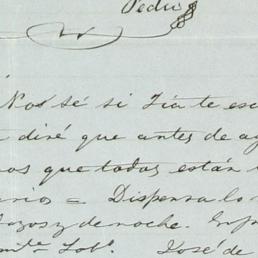 Pedro
No sé si Tía te es
diré que antes de ay
os que todos están
rios = Dispensa lo
azos y de noche.
José de